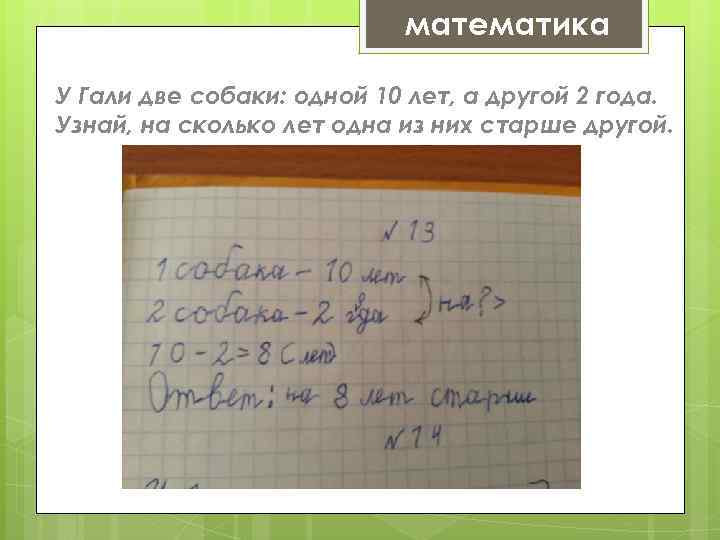 математика
У Гали две собаки: одной 10 лет, а другой 2 года.
Узнай, на сколько лет одна из них старше другой.
N 13
1 собака - 10 лет
2 собака - 2 года на ? >
10 - 2 = 8 (лет)
Ответ: на 8 лет старше
N 14